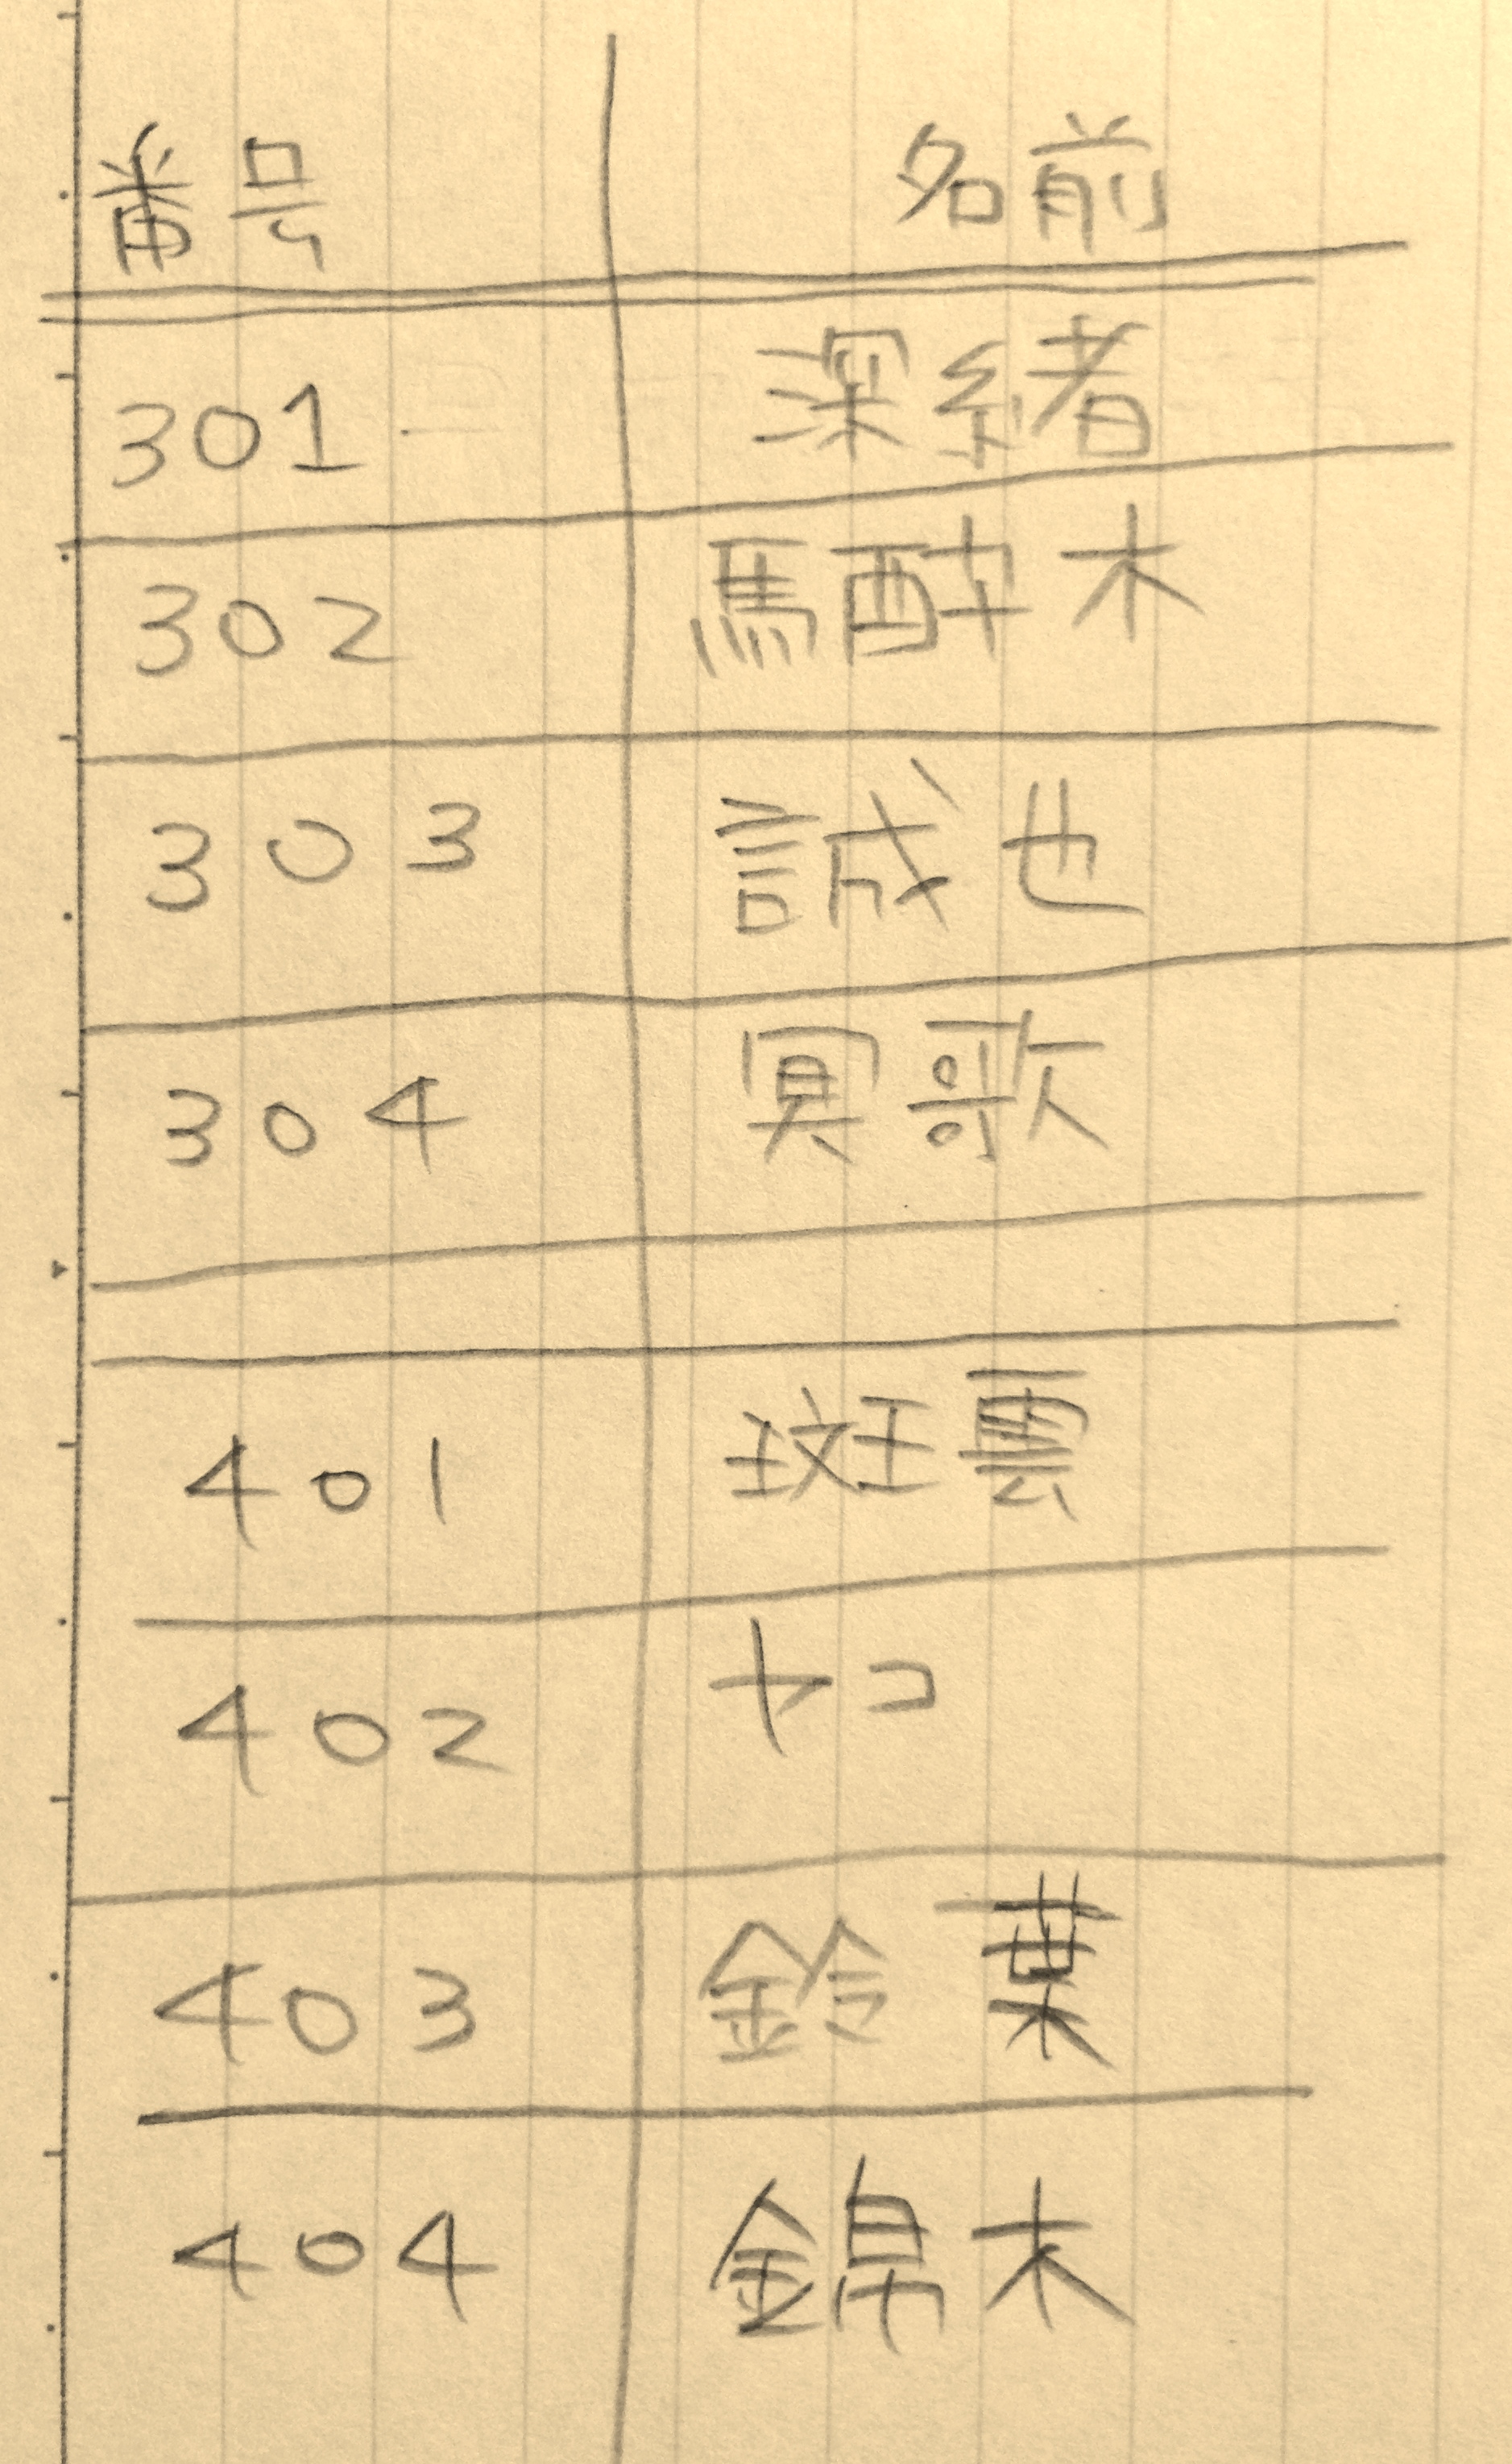 番号 名前
301 深緒
302 馬酔木
303 誠也
304 冥歌
401 斑雲
402 ヤコ
403 鈴葉
404 錦木